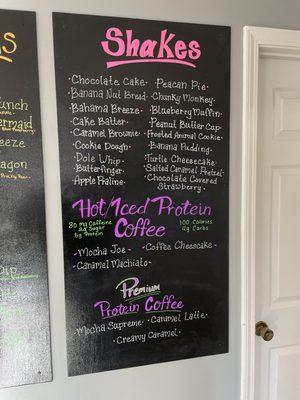 Shakes
·Chocolate Cake· ·Peacan Pie·
·Banana Nut Bread· ·Chunky Monkey·
·Bahama Breeze· ·Blueberry Muffin·
·Cake Batter· ·Peanut Butter Cup·
·Caramel Brownie· ·Frosted Animal Cookie·
·Cookie Dough· ·Banana Pudding·
·Dole Whip· ·Turtle Cheesecake·
·Butterfinger· ·Salted Caramel Pretzel·
·Apple Praline· ·Chocolate Covered
Strawberry·
Hot/Iced Protein
Coffee
80 mg Caffeine
2g Sugar
15g Protein
100 Calories
4g Carbs
·Mocha Joe· ·Coffee Cheescake·
·Caramel Machiato·
Premium
Protein Coffee
·Mocha Supreme· ·Caramel Latte·
·Creamy Caramel·
unch
ermaid
eeze
agon